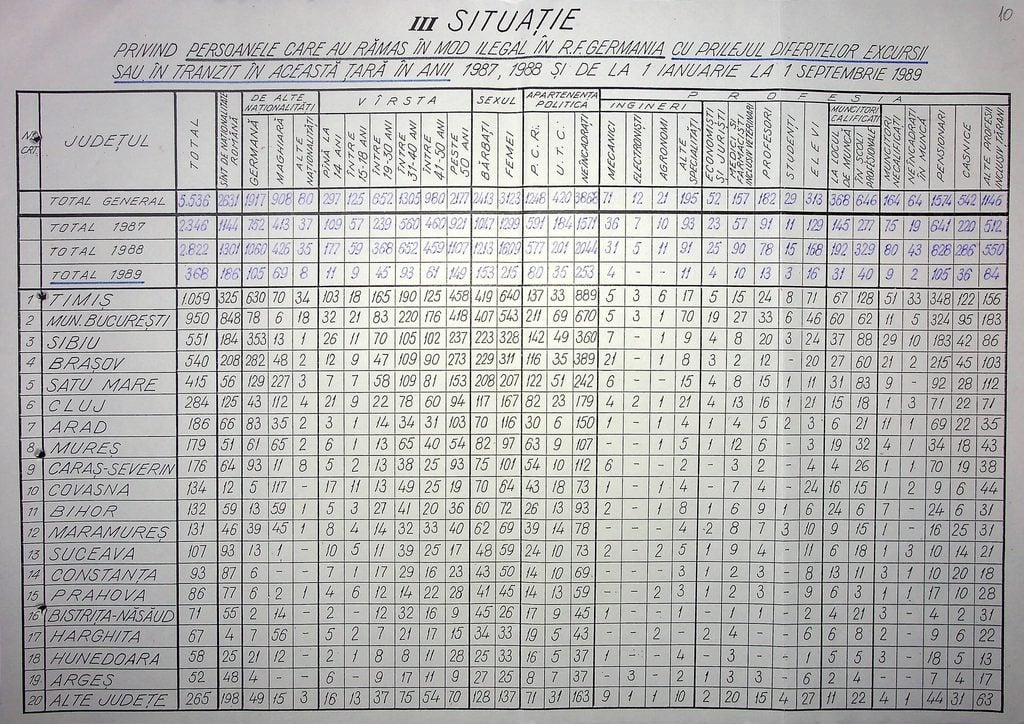 10
III SITUAȚIE
PRIVIND PERSOANELE CARE AU RĂMAS ÎN MOD ILEGAL ÎN R.F.GERMANIA CU PRILEJUL DIFERITELOR EXCURSII
SAU ÎN TRANZIT ÎN ACEASTĂ ȚARĂ ÎN ANII 1987, 1988 ȘI DE LA 1 IANUARIE LA 1 SEPTEMBRIE 1989
NR. CRT. JUDEȚUL TOTAL SÎNT DE NAȚIONALITATE ROMÂNĂ
DE ALTE NAȚIONALITĂȚI GERMANĂ MAGHIARĂ ALTE NAȚIONALITĂȚI
VÎRSTA PÎNĂ LA 14 ANI ÎNTRE 15-18 ANI ÎNTRE 19-30 ANI ÎNTRE 31-40 ANI ÎNTRE 41-50 ANI PESTE 50 ANI
SEXUL BĂRBAȚI FEMEI
APARTENENȚA POLITICĂ P.C.R. U.T.C. NEÎNCADRAȚI
PROFESIA
INGINERI MECANICI ELECTRONIȘTI AGRONOMI ALTE SPECIALITĂȚI
ECONOMIȘTI ȘI JURIȘTI MEDICI ȘI FARMACIȘTI INCLUSIV VETERINARI PROFESORI STUDENȚI ELEVI
MUNCITORI CALIFICAȚI LA LOCUL DE MUNCĂ ÎN ȘCOLI PROFESIONALE
MUNCITORI NECALIFICAȚI NEÎNCADRAȚI ÎN MUNCĂ PENSIONARI CASNICE ALTE PROFESII INCLUSIV ȚĂRANI
TOTAL GENERAL 5.536 2631 1917 908 80 297 125 652 1305 980 2177 2413 3123 1248 420 3868 71 12 21 195 52 157 182 29 313 368 646 164 64 1574 542 1146
TOTAL 1987 2.346 1144 752 413 37 109 57 239 560 460 921 1047 1299 591 184 1571 36 7 10 93 23 57 91 11 129 145 277 75 19 641 220 512
TOTAL 1988 2.822 1301 1060 426 35 177 59 368 652 459 1107 1213 1609 577 201 2044 31 5 11 91 25 90 78 15 168 192 329 80 43 828 286 550
TOTAL 1989 368 186 105 69 8 11 9 45 93 61 149 153 215 80 35 253 4 - - 11 4 10 13 3 16 31 40 9 2 105 36 84
1 TIMIȘ 1.059 325 630 70 34 103 18 165 190 125 458 419 640 137 33 889 5 3 6 17 5 15 24 8 71 67 128 51 33 348 122 156
2 MUN.BUCUREȘTI 950 848 78 6 18 32 21 83 220 176 418 407 543 211 69 670 5 3 1 70 19 27 33 6 46 60 62 11 5 324 95 183
3 SIBIU 551 184 353 13 1 26 11 70 105 102 237 223 328 142 49 360 7 - 1 9 4 8 20 3 24 37 88 29 10 183 42 86
4 BRAȘOV 540 208 282 48 2 12 9 47 109 90 273 229 311 116 35 389 21 - 1 8 3 2 12 - 20 27 60 21 2 215 45 103
5 SATU MARE 415 56 129 227 3 7 7 58 109 81 153 208 207 122 51 242 6 - - 15 4 8 15 1 11 31 83 9 - 92 28 112
6 CLUJ 284 125 43 112 4 21 9 22 78 60 94 117 167 82 23 179 4 2 1 21 4 13 16 1 21 15 18 1 3 71 22 71
7 ARAD 186 66 83 35 2 3 1 14 34 31 103 70 116 30 6 150 1 - - 4 1 4 5 2 3 6 21 11 1 69 22 35
8 MUREȘ 179 51 61 65 2 6 1 13 65 40 54 82 97 63 9 107 - - - 5 1 12 6 - 3 19 32 4 - 34 18 43
9 CARAȘ-SEVERIN 176 64 93 11 8 5 2 13 38 25 93 75 101 54 10 112 6 - - 2 - 3 2 - 4 4 26 1 1 70 19 38
10 COVASNA 134 12 5 117 - 17 11 13 49 25 19 70 64 43 18 73 1 - 1 4 - 7 4 - 24 16 15 1 2 9 6 44
11 BIHOR 132 59 13 59 1 5 3 27 41 20 36 60 72 26 13 93 2 - 1 8 1 6 9 1 6 24 6 7 - 24 6 31
12 MARAMUREȘ 131 46 39 45 1 8 4 14 32 33 40 62 69 39 14 78 - - - 4 2 8 7 3 10 9 15 1 - 16 25 31
13 SUCEAVA 107 93 13 1 - 10 5 11 39 25 17 48 59 24 10 73 2 - 2 5 1 9 4 - 11 6 18 1 3 10 14 21
14 CONSTANȚA 93 87 6 - - 7 1 17 29 16 23 43 50 14 10 69 - - - 3 1 2 3 - 8 13 11 3 1 10 20 18
15 PRAHOVA 86 77 6 2 1 4 6 12 14 22 28 41 45 14 13 59 - - 2 3 1 2 3 - 9 6 3 1 1 17 10 28
16 BISTRIȚA-NĂSĂUD 71 55 2 14 - - 2 12 32 16 9 45 26 17 9 45 1 - - 1 - - 1 - 2 4 21 3 - 4 2 31
17 HARGHITA 67 4 7 56 - 5 2 7 21 17 15 34 33 19 5 43 - - 2 - 2 4 - - 6 6 8 2 - 9 6 22
18 HUNEDOARA 58 25 21 12 - 2 1 8 8 11 28 25 33 16 5 37 1 - - 4 - 3 - - 1 5 5 3 - 18 5 13
19 ARGEȘ 52 48 4 - - 6 - 9 17 11 9 27 25 8 7 37 - 3 - 2 1 3 3 - 6 2 4 - - 7 4 17
20 ALTE JUDEȚE 265 198 49 15 3 16 13 37 75 54 70 128 137 71 31 163 9 1 1 10 2 20 15 4 27 11 22 4 1 44 31 63